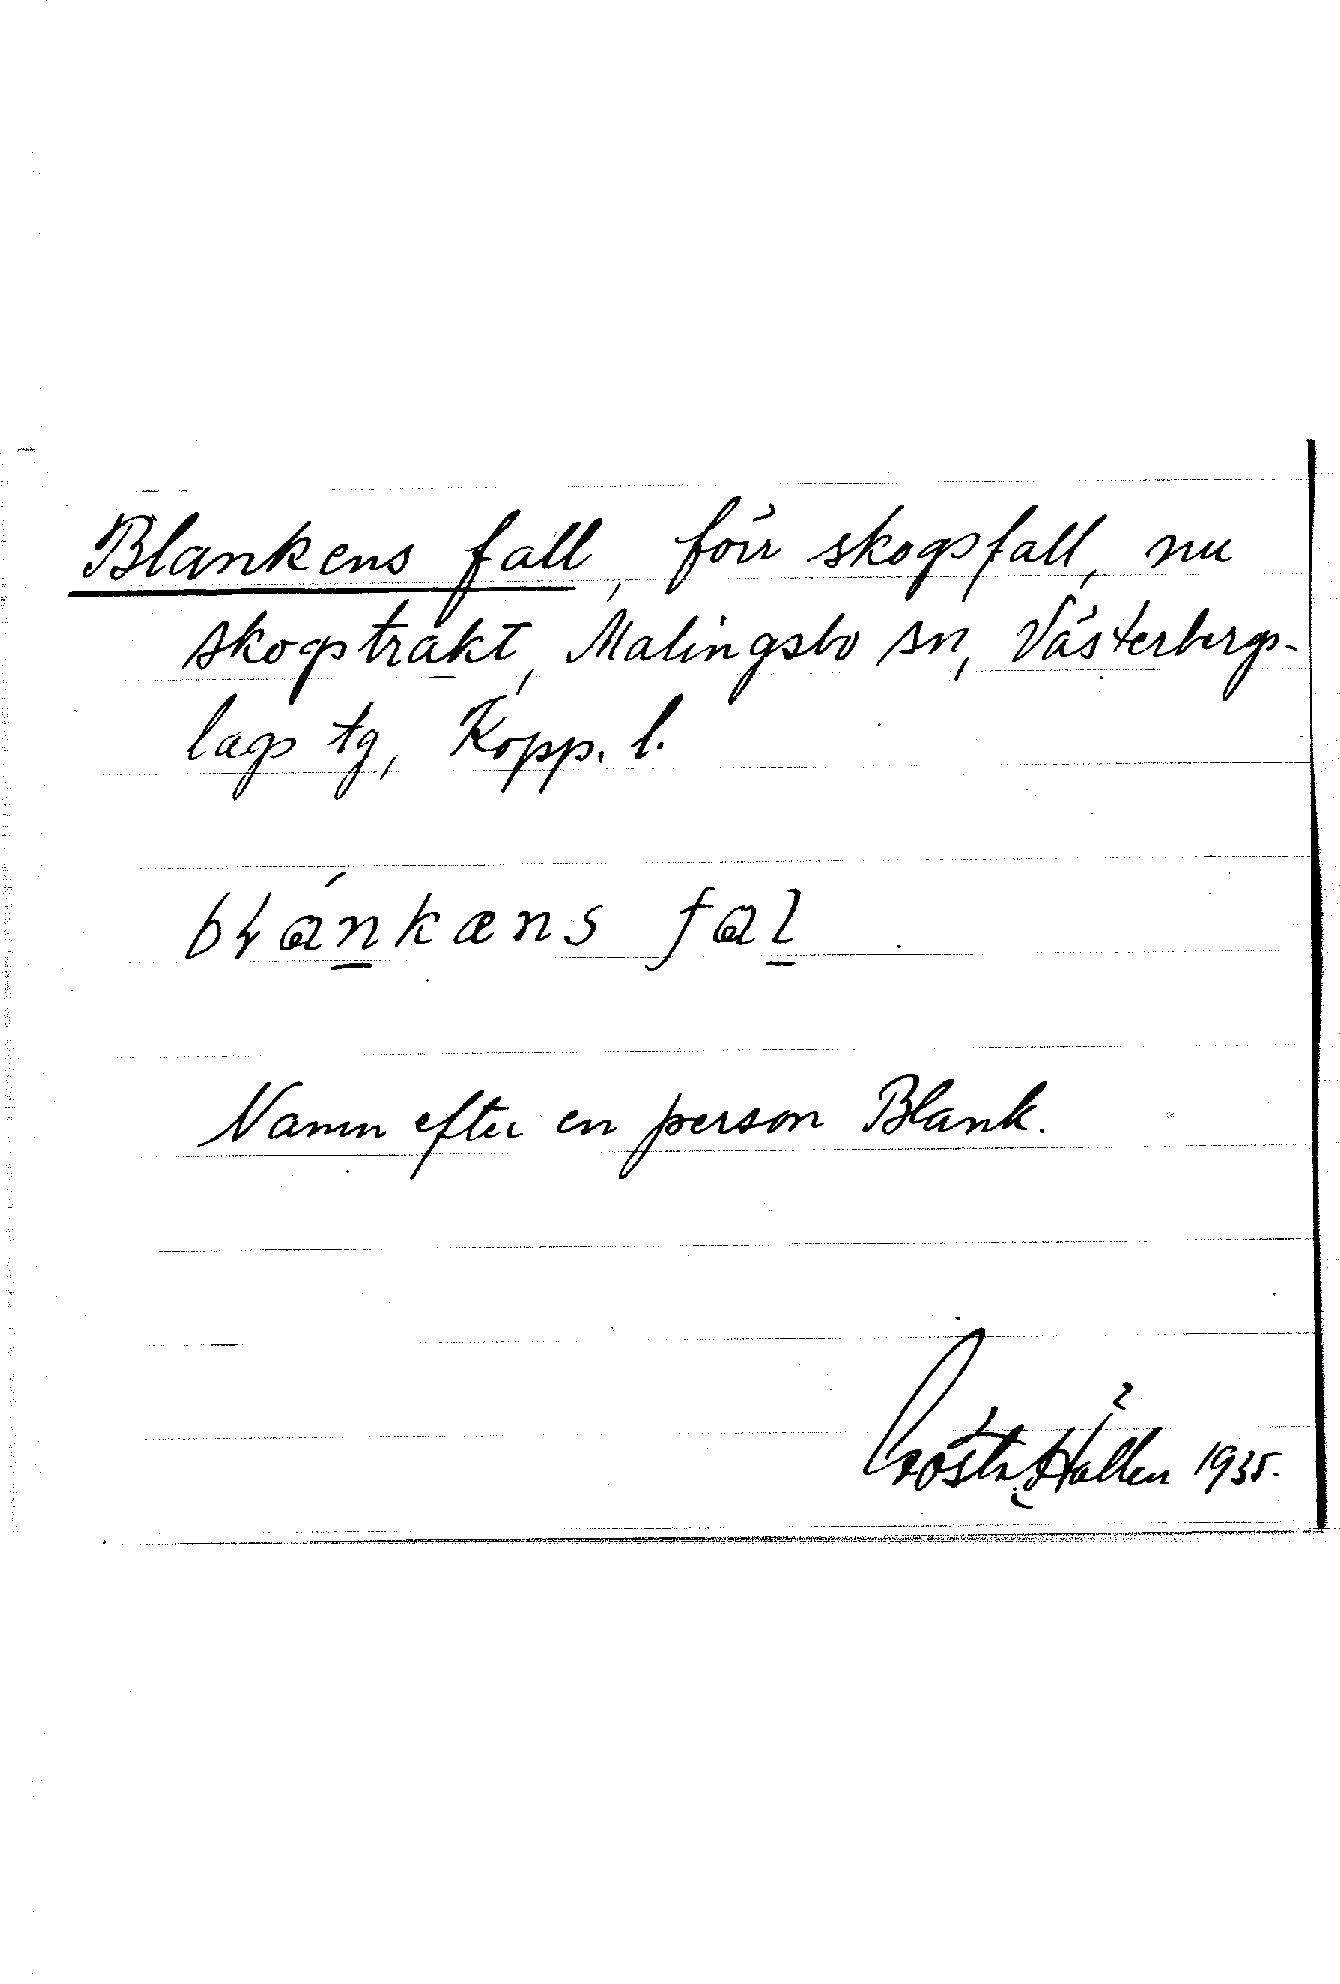 Blankens fall, förr skogsfall, nu
skogstrakt, Malingsbo sn, Västerbergs-
lags tg, Kopp. l.
blánkæns fal
Namn efter en person Blank.
Gösta Hallén 1935.